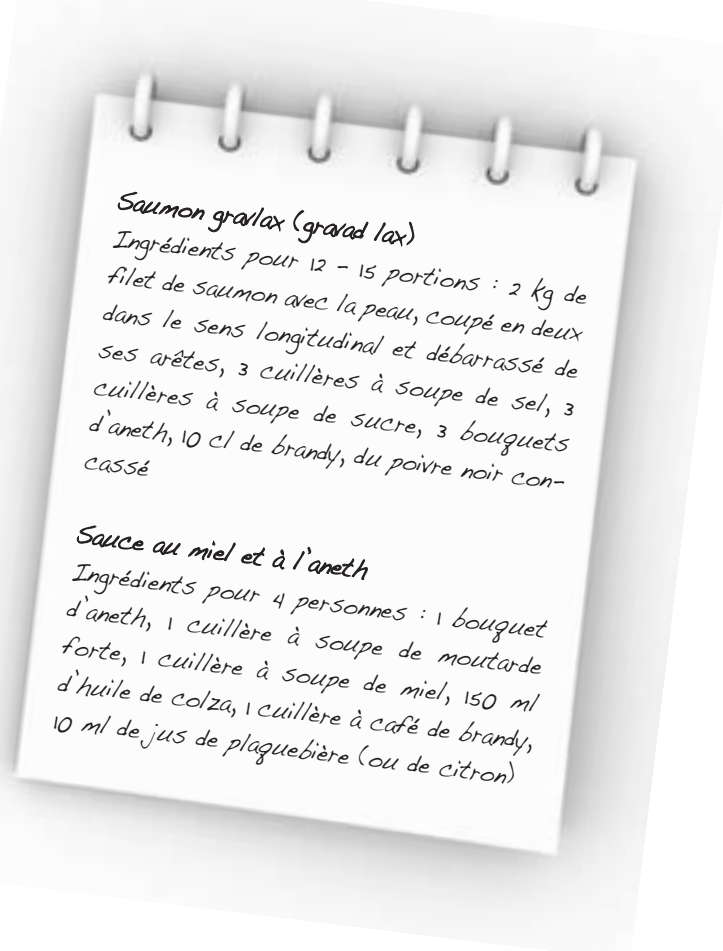 Saumon gravlax (gravad lax)
Ingrédients pour 12 – 15 portions : 2 kg de
filet de saumon avec la peau, coupé en deux
dans le sens longitudinal et débarrassé de
ses arêtes, 3 cuillères à soupe de sel, 3
cuillères à soupe de sucre, 3 bouquets
d'aneth, 10 cl de brandy, du poivre noir con-
cassé
Sauce au miel et à l'aneth
Ingrédients pour 4 personnes : 1 bouquet
d'aneth, 1 cuillère à soupe de moutarde
forte, 1 cuillère à soupe de miel, 150 ml
d'huile de colza, 1 cuillère à café de brandy,
10 ml de jus de plaquebière (ou de citron)